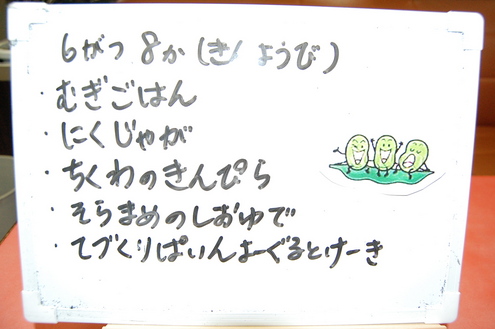 6がつ 8か(きんようび)
・むぎごはん
・にくじゃが
・ちくわのきんぴら
・そらまめのしおゆで
・てづくりぱいんよーぐるとけーき